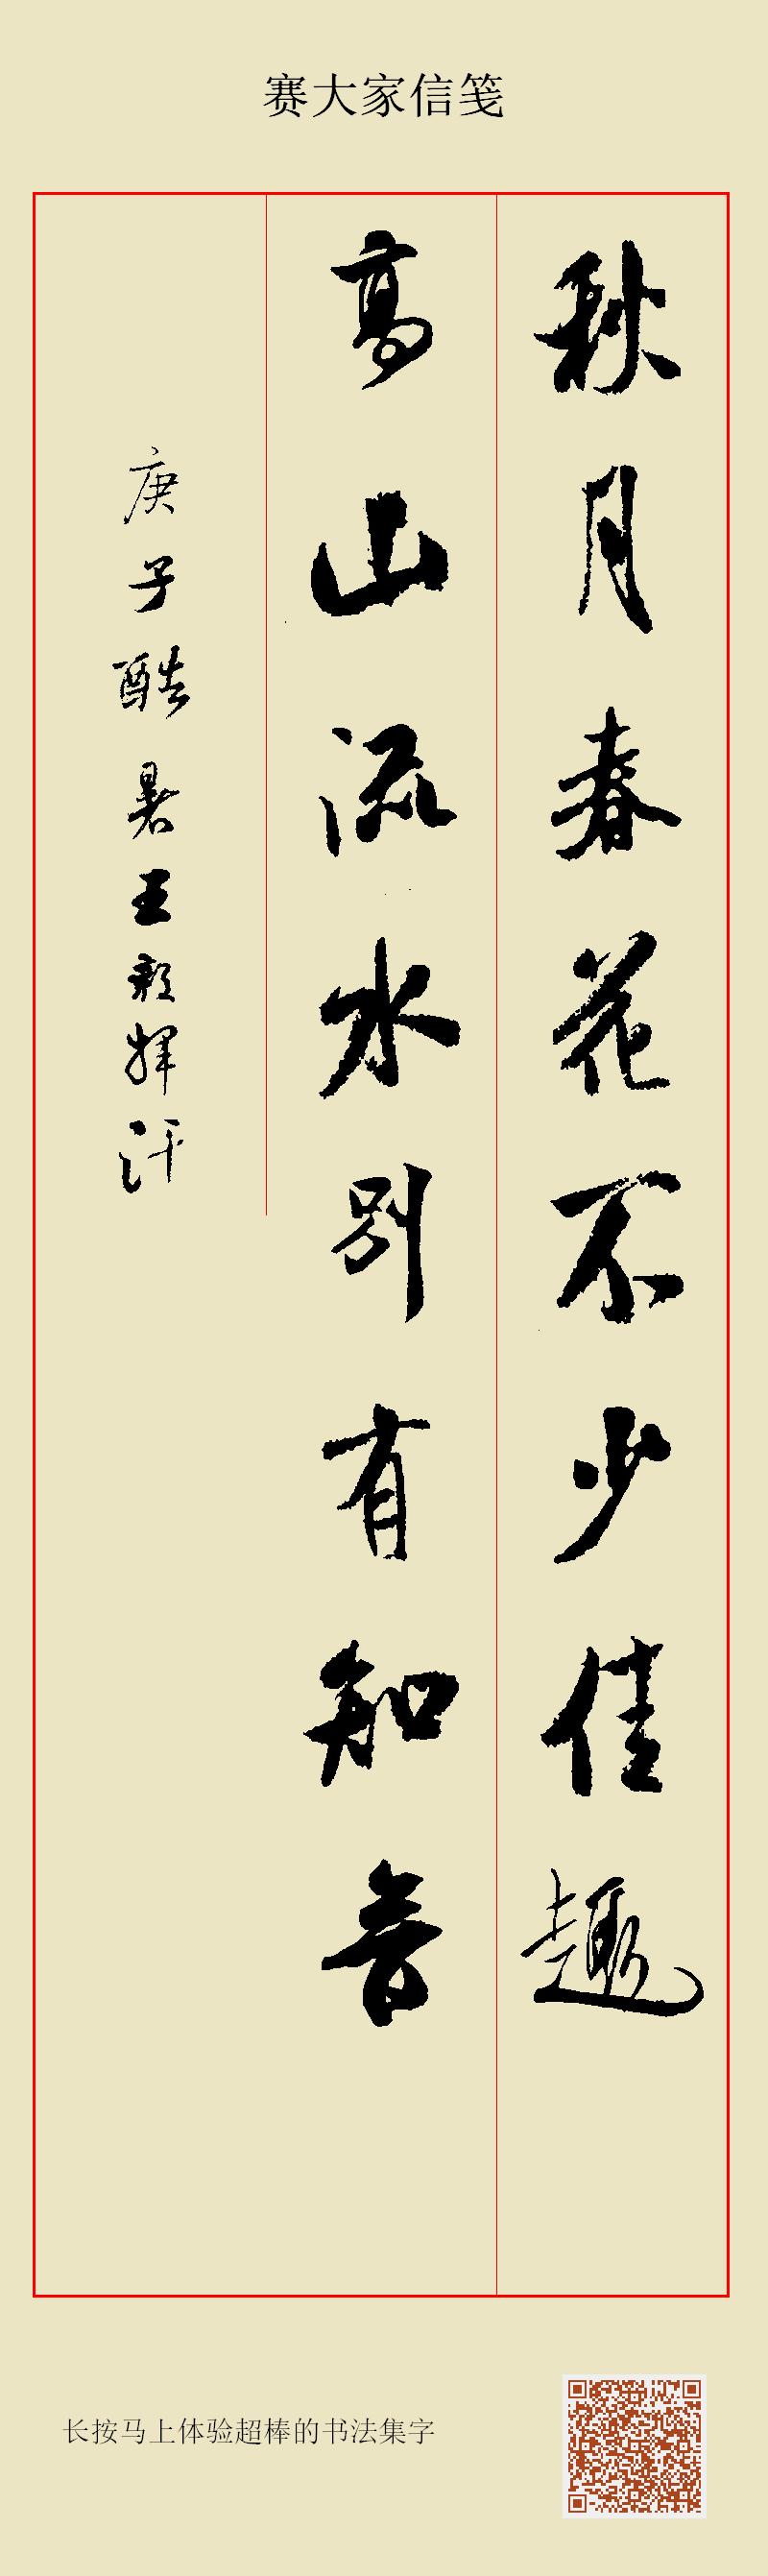 赛大家信笺
秋月春花不少佳趣
高山流水别有知音
庚子酷暑王毅挥汗
长按马上体验超棒的书法集字